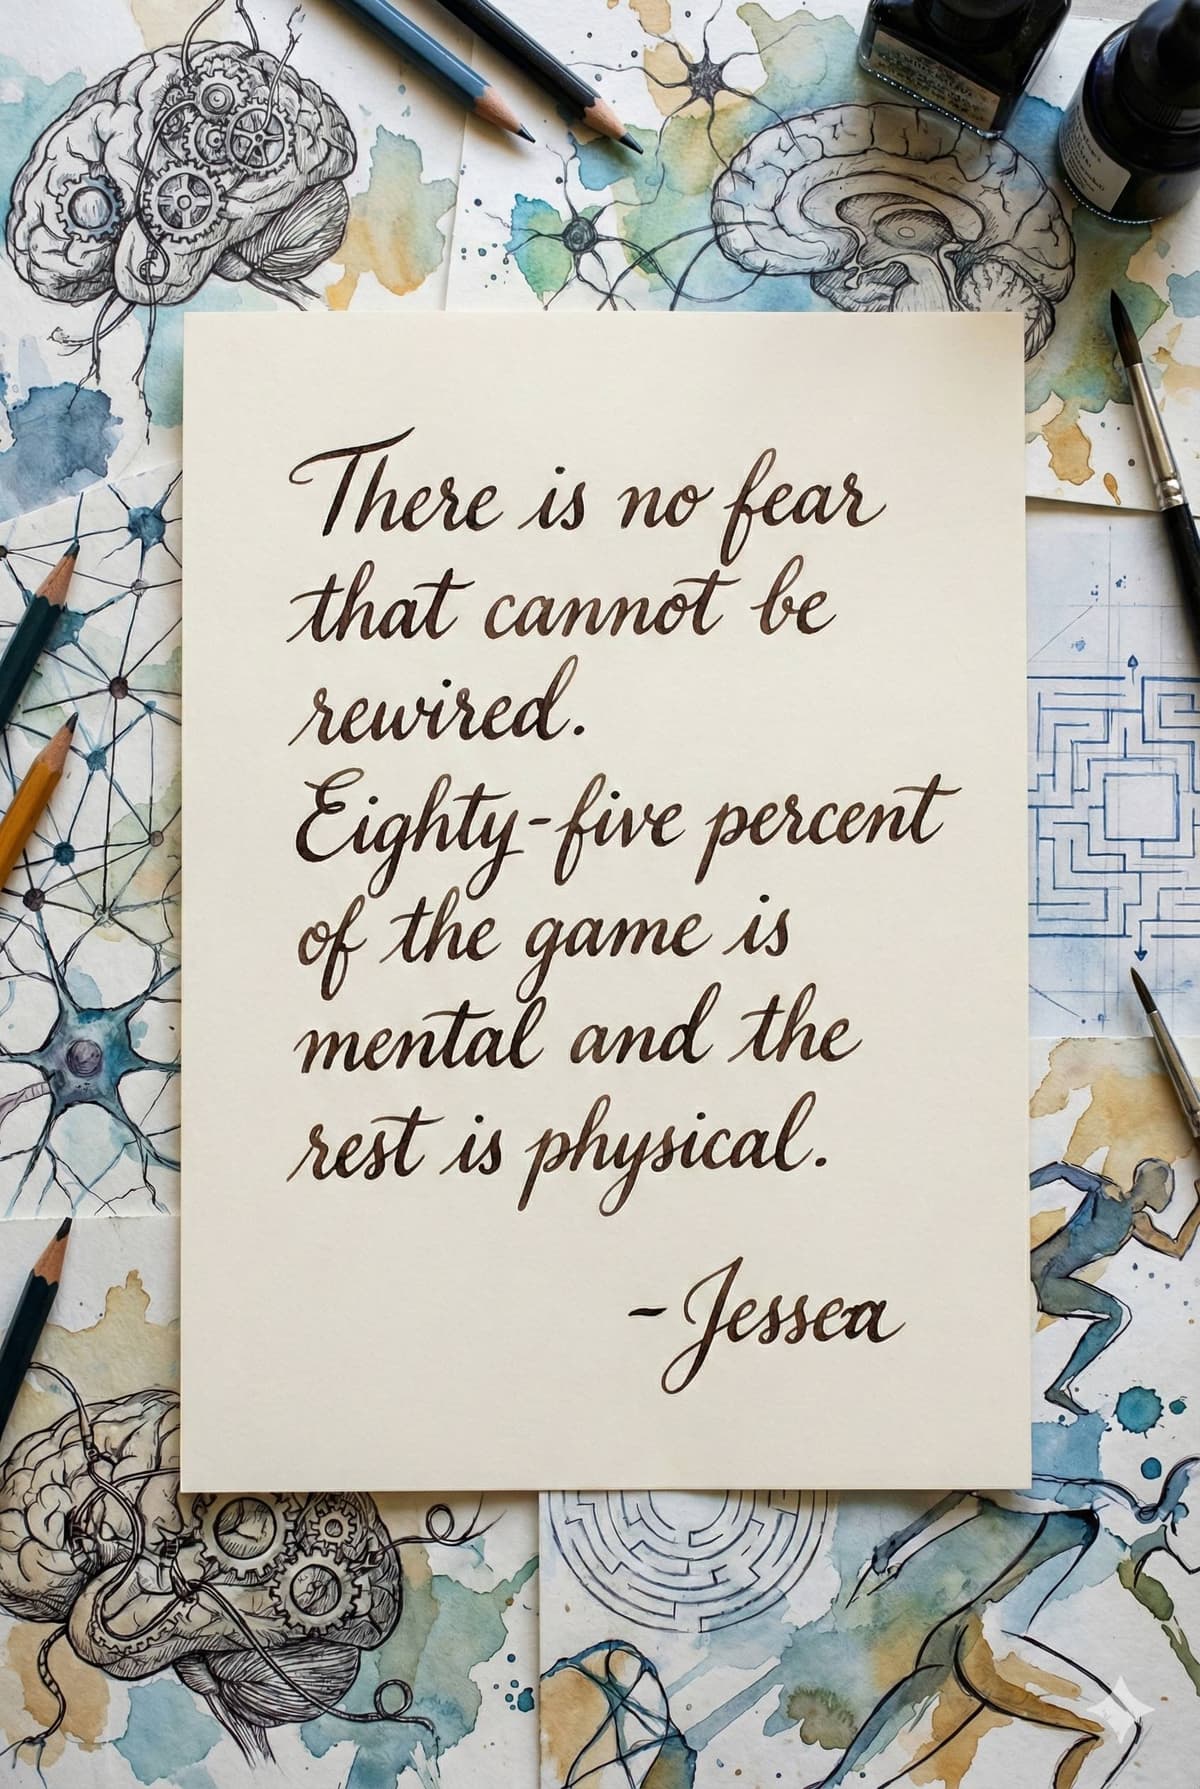 There is no fear
that cannot be
rewired.
Eighty-five percent
of the game is
mental and the
rest is physical.
- Jessea